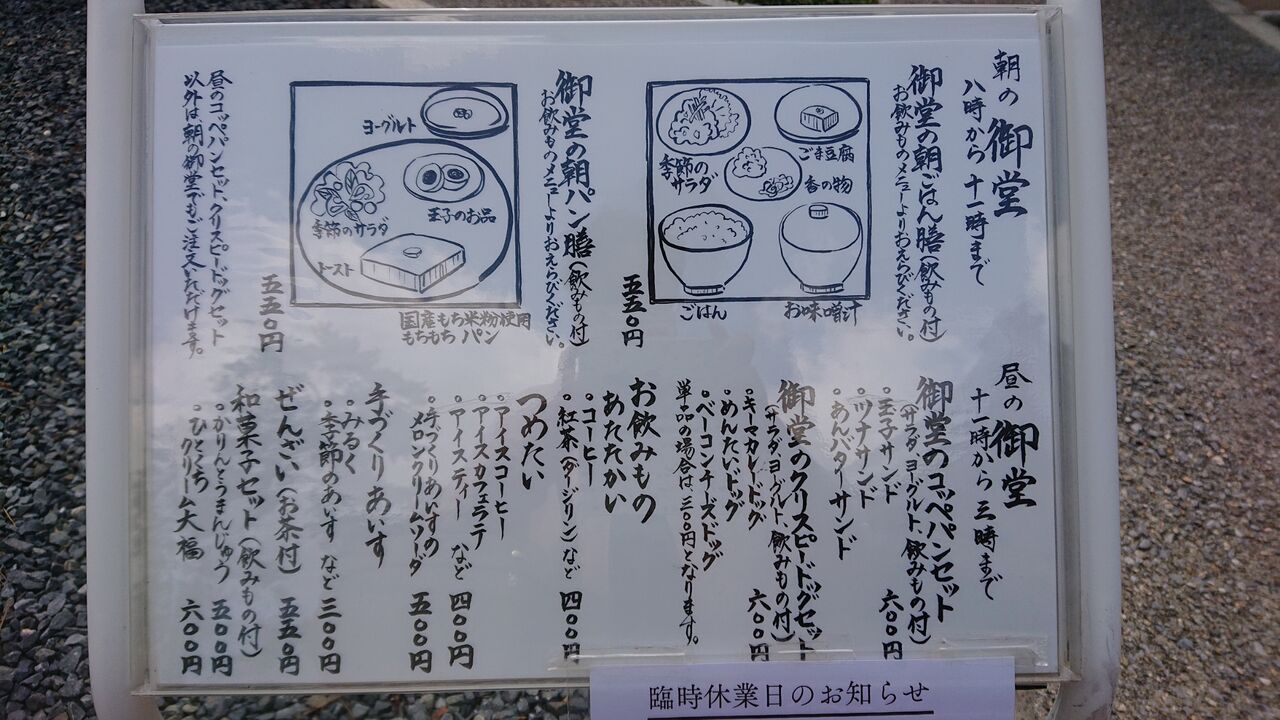 朝の御堂
八時から十一時まで
御堂の朝ごはん膳(飲みもの付)
お飲みものメニューよりおえらびください。
季節の
サラダ
ごま豆腐
香の物
ごはん
お味噌汁
五五〇円
御堂の朝パン膳(飲みもの付)
お飲みものメニューよりおえらびください。
ヨーグルト
玉子のお品
季節のサラダ
トースト
国産もち米粉使用
もちもちパン
五五〇円
昼のコッペパンセット、クリスピードッグセット
以外は朝の御堂でもご注文いただけます。
昼の御堂
十一時から三時まで
御堂のコッペパンセット
(サラダ、ヨーグルト、飲みもの付)
六〇〇円
・玉子サンド
・ツナサンド
・あんバターサンド
御堂のクリスピードッグセット
(サラダ、ヨーグルト、飲みもの付)
六〇〇円
・キーマカレードッグ
・めんたいドッグ
・ベーコンチーズドッグ
単品の場合は三〇〇円となります。
お飲みもの
あたたかい
・コーヒー
・紅茶(ダージリン)など 四〇〇円
つめたい
・アイスコーヒー
・アイスカフェラテ
・アイスティー など 四〇〇円
・手づくりあいすの
メロンクリームソーダ 五〇〇円
手づくりあいす
・みるく
・季節のあいす など 三〇〇円
ぜんざい(お茶付) 五五〇円
和菓子セット(飲みもの付)
・かりんとうまんじゅう 五〇〇円
・ひとくち
クリーム大福 六〇〇円
臨時休業日のお知らせ